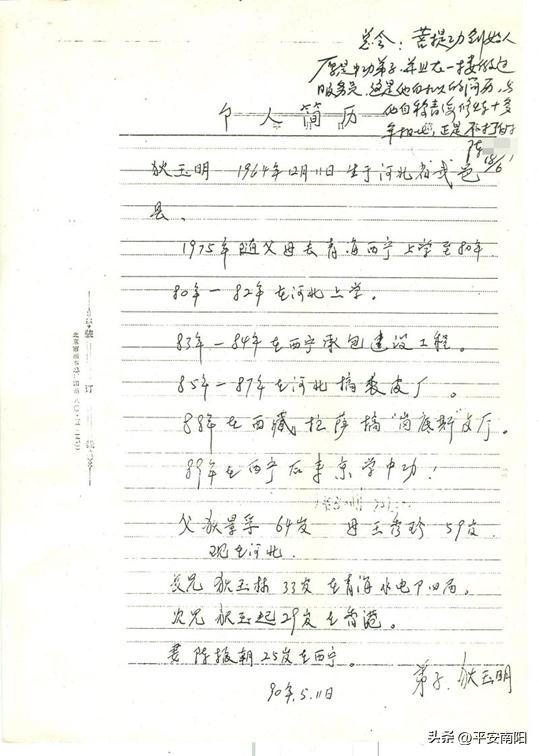 总会：菩提功创始人
原是中功弟子，并且在一楼做过
服务员，这是他自己的简历，与
他自称青海修练十多
年相
正是不打自
陈
个人简历
狄玉明 1964年12月11日生于河北省武邑
县。
1975年随父母去青海西宁上学至80年
80年—82年在河北上学。
83年—84年在西宁承包建设工程。
85年—87年在河北搞裘皮厂。
88年在西藏拉萨搞
89年在西宁后来京学中功！
父狄 64岁 母王秀珍 59岁
现在河北。
长兄狄玉栋 33岁在青海水电
次兄狄玉起29岁在香港。
妻陈振朝25岁在西宁。
弟子、狄玉明
90年.5.11日
装
订
线
头条@平安南阳